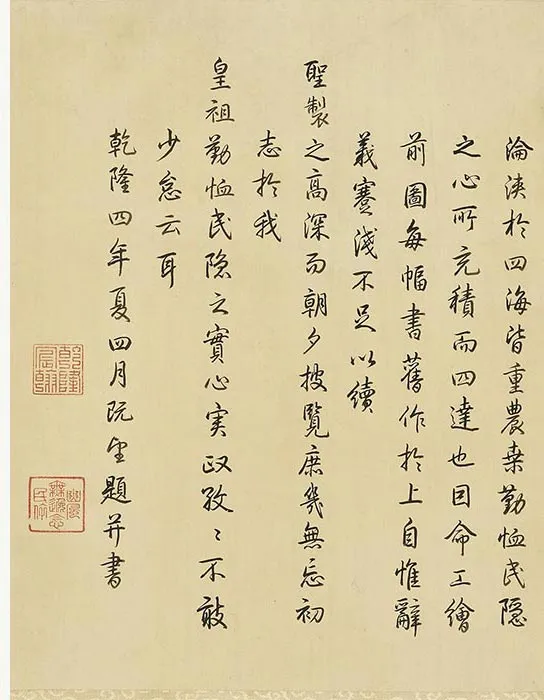 淪浹於四海皆重農桑勤恤民隱
之心所充積而四達也因命工繪
前圖每幅書舊作於上自惟辭
義蹇淺不足以續
聖製之高深而朝夕披覽庶幾無忘初
志於我
皇祖勤恤民隱之實心實政孜〻不敢
少怠云耳
乾隆四年夏四月既望題并書
乾隆
宸翰